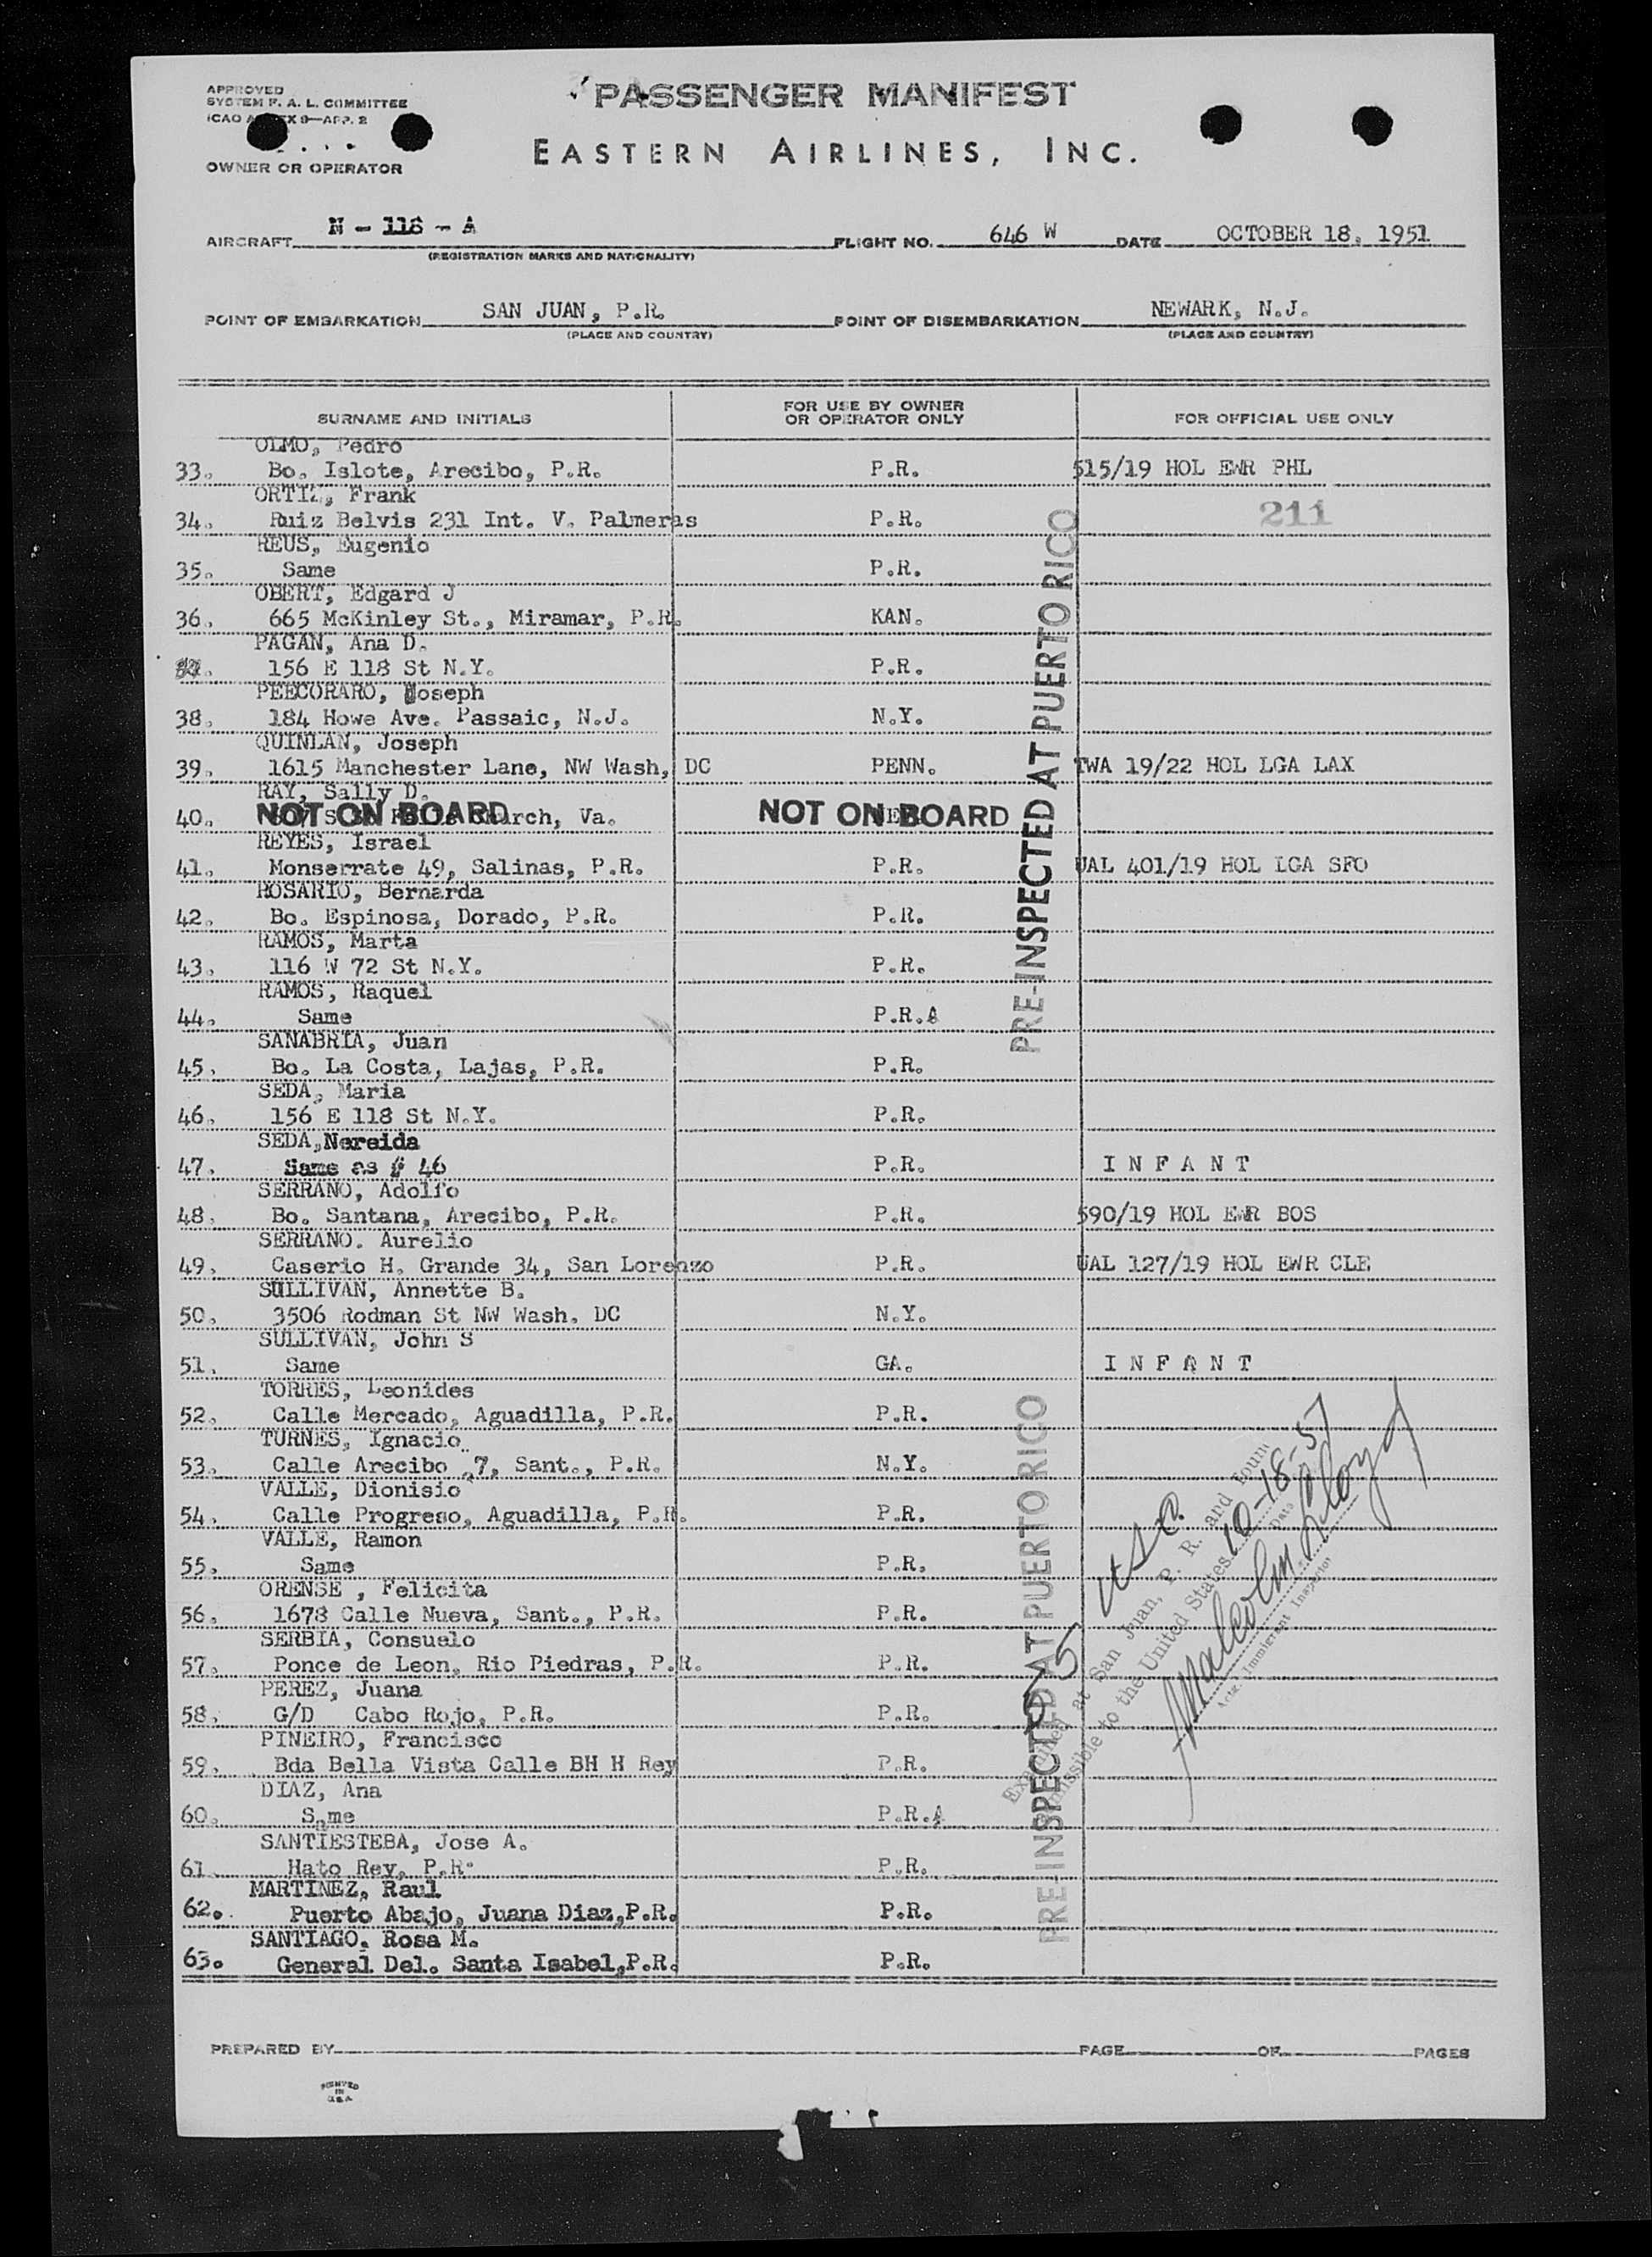 APPROVED
SYSTEM F. A. L. COMMITTEE
ICAO X 9—APP. 2
OWNER OR OPERATOR
PASSENGER MANIFEST
EASTERN AIRLINES, INC.
AIRCRAFT N - 118 - A FLIGHT NO. 646 W DATE OCTOBER 18, 1951
(REGISTRATION MARKS AND NATIONALITY)
POINT OF EMBARKATION SAN JUAN, P.R. POINT OF DISEMBARKATION NEWARK, N.J.
(PLACE AND COUNTRY) (PLACE AND COUNTRY)
SURNAME AND INITIALS FOR USE BY OWNER OR OPERATOR ONLY FOR OFFICIAL USE ONLY
OLMO, Pedro
33. Bo. Islote, Arecibo, P.R. P.R. 515/19 HOL EWR PHL
ORTIZ, Frank
34. Ruiz Belvis 231 Int. V. Palmeras P.R. 211
REUS, Eugenio
35. Same P.R.
OBERT, Edgard J
36. 665 McKinley St., Miramar, P.R. KAN.
PAGAN, Ana D.
156 E 118 St N.Y. P.R.
PEECORARO, Joseph
38. 184 Howe Ave. Passaic, N.J. N.Y.
QUINLAN, Joseph
39. 1615 Manchester Lane, NW Wash, DC PENN. TWA 19/22 HOL LGA LAX
RAY, Sally D.
40. NOT ON BOARD Church, Va. NOT ON BOARD
REYES, Israel
41. Monserrate 49, Salinas, P.R. P.R. UAL 401/19 HOL LGA SFO
ROSARIO, Bernarda
42. Bo. Espinosa, Dorado, P.R. P.R.
RAMOS, Marta
43. 116 W 72 St N.Y. P.R.
RAMOS, Raquel
44. Same P.R.A
SANABRIA, Juan
45. Bo. La Costa, Lajas, P.R. P.R.
SEDA, Maria
46. 156 E 118 St N.Y. P.R.
SEDA, Nereida
47. Same as # 46 P.R. I N F A N T
SERRANO, Adolfo
48. Bo. Santana, Arecibo, P.R. P.R. 590/19 HOL EWR BOS
SERRANO. Aurelio
49. Caserio H. Grande 34, San Lorenzo P.R. UAL 127/19 HOL EWR CLE
SULLIVAN, Annette B.
50. 3506 Rodman St NW Wash. DC N.Y.
SULLIVAN, John S
51. Same GA. I N F A N T
TORRES, Leonides
52. Calle Mercado, Aguadilla, P.R. P.R.
TURNES, Ignacio
53. Calle Arecibo 7, Sant., P.R. N.Y.
VALLE, Dionisio
54. Calle Progreso, Aguadilla, P.R. P.R.
VALLE, Ramon
55. Same P.R.
ORENSE , Felicita
56. 1678 Calle Nueva, Sant., P.R. P.R.
SERBIA, Consuelo
57. Ponce de Leon, Rio Piedras, P.R. P.R.
PEREZ, Juana
58. G/D Cabo Rojo, P.R. P.R.
PINEIRO, Francisco
59. Bda Bella Vista Calle BH H Rey P.R.
DIAZ, Ana
60. Same P.R.A
SANTIESTEBA, Jose A.
61. Hato Rey, P.R. P.R.
MARTINEZ, Raul
62. Puerto Abajo, Juana Diaz, P.R. P.R.
SANTIAGO, Rosa M.
63. General Del. Santa Isabel, P.R. P.R.
PRE-INSPECTED AT PUERTO RICO
PRE-INSPECTED AT PUERTO RICO
5 USC
Examined at San Juan, P. R. and found
admissible to the United States 10-18-51
Date
Malcolm Lloyd
Actg. Immigrant Inspector
PREPARED BY PAGE OF PAGES
PRINTED
IN
U.S.A.